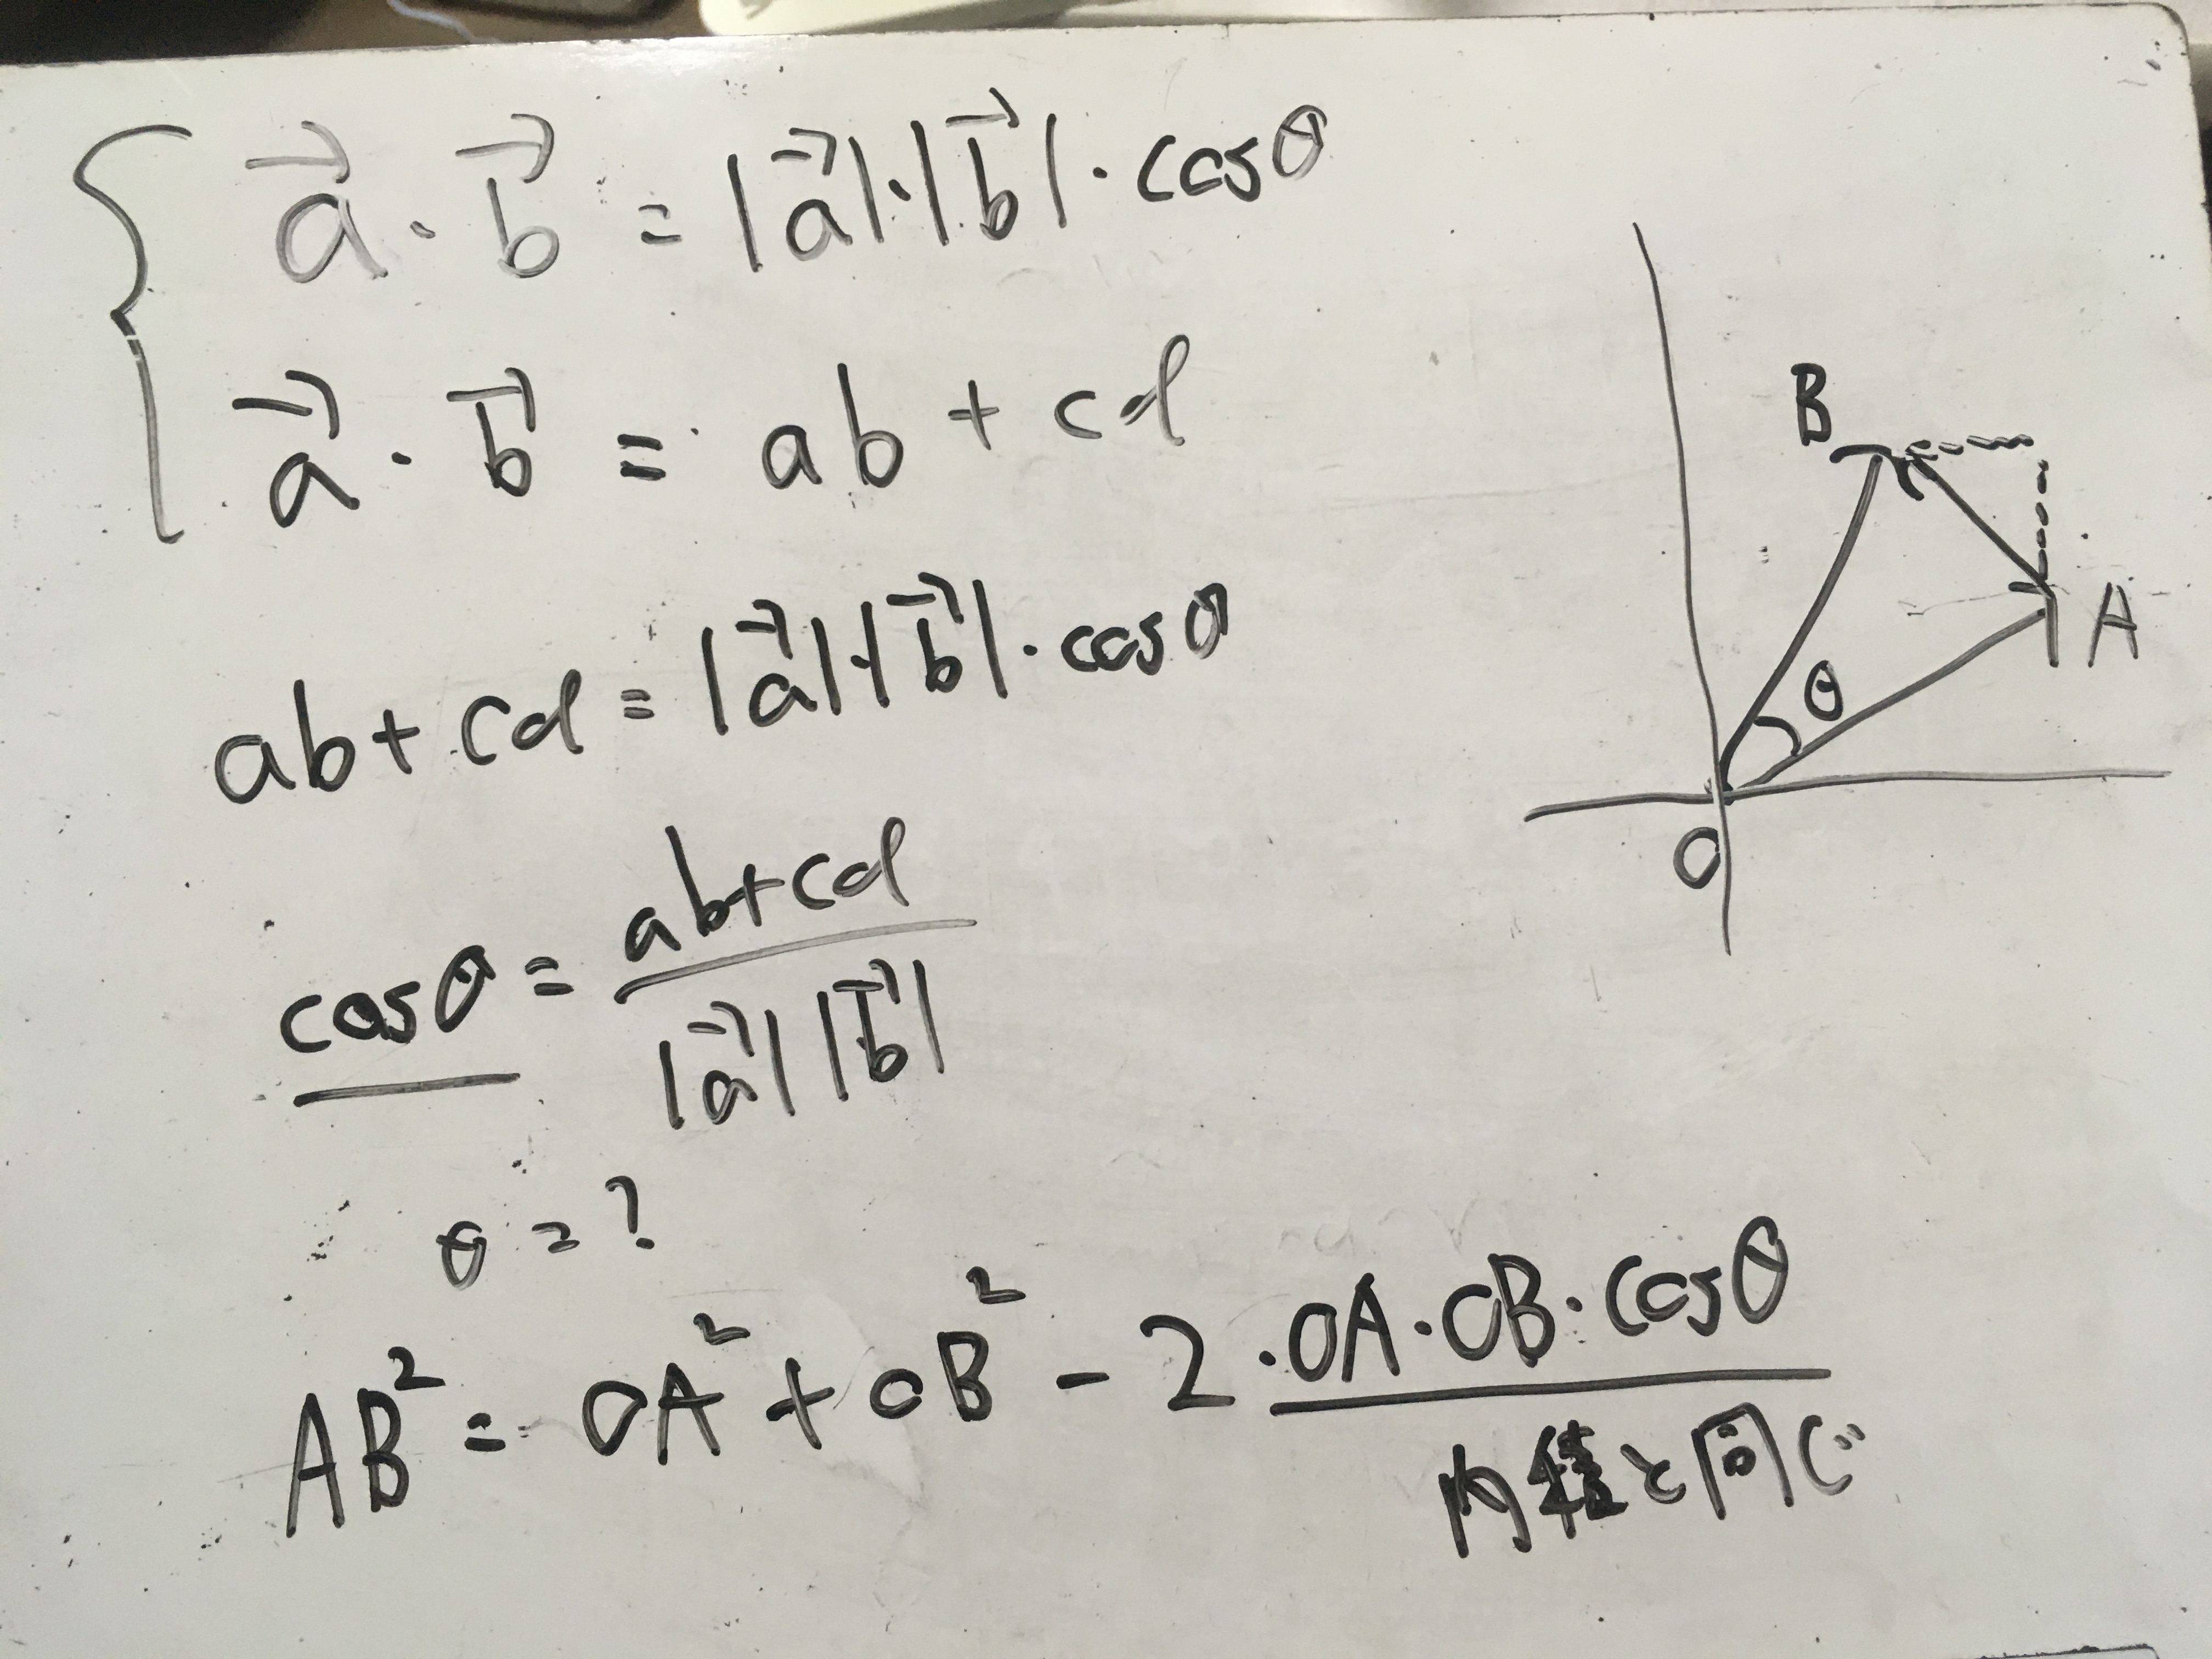 a⃗ · b⃗ = |a⃗|·|b⃗|·cosθ
a⃗ · b⃗ = ab + cd
ab + cd = |a⃗|·|b⃗|·cosθ
cosθ = ab+cd / |a⃗||b⃗|
θ = ?
AB² = OA² + OB² - 2·OA·OB·cosθ
B
A
θ
O